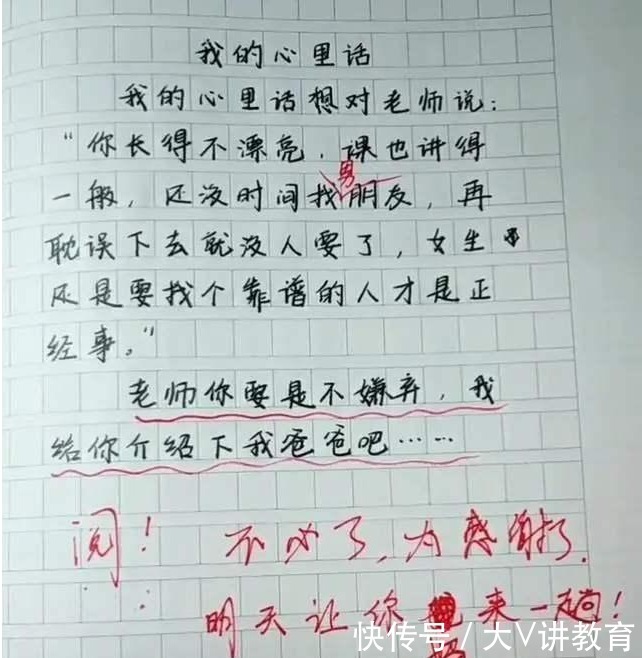 我的心里话
我的心里话想对老师说：
“你长得不漂亮，课也讲得
男
一般，还没时间找朋友，再
耽误下去就没人要了，女生
还是要找个靠谱的人才是正
经事。”
老师你要是不嫌弃，我
给你介绍下我爸爸吧……
阅！ 不必了，太感谢了，
明天让你 来一趟！
妈
快传号／大V讲教育